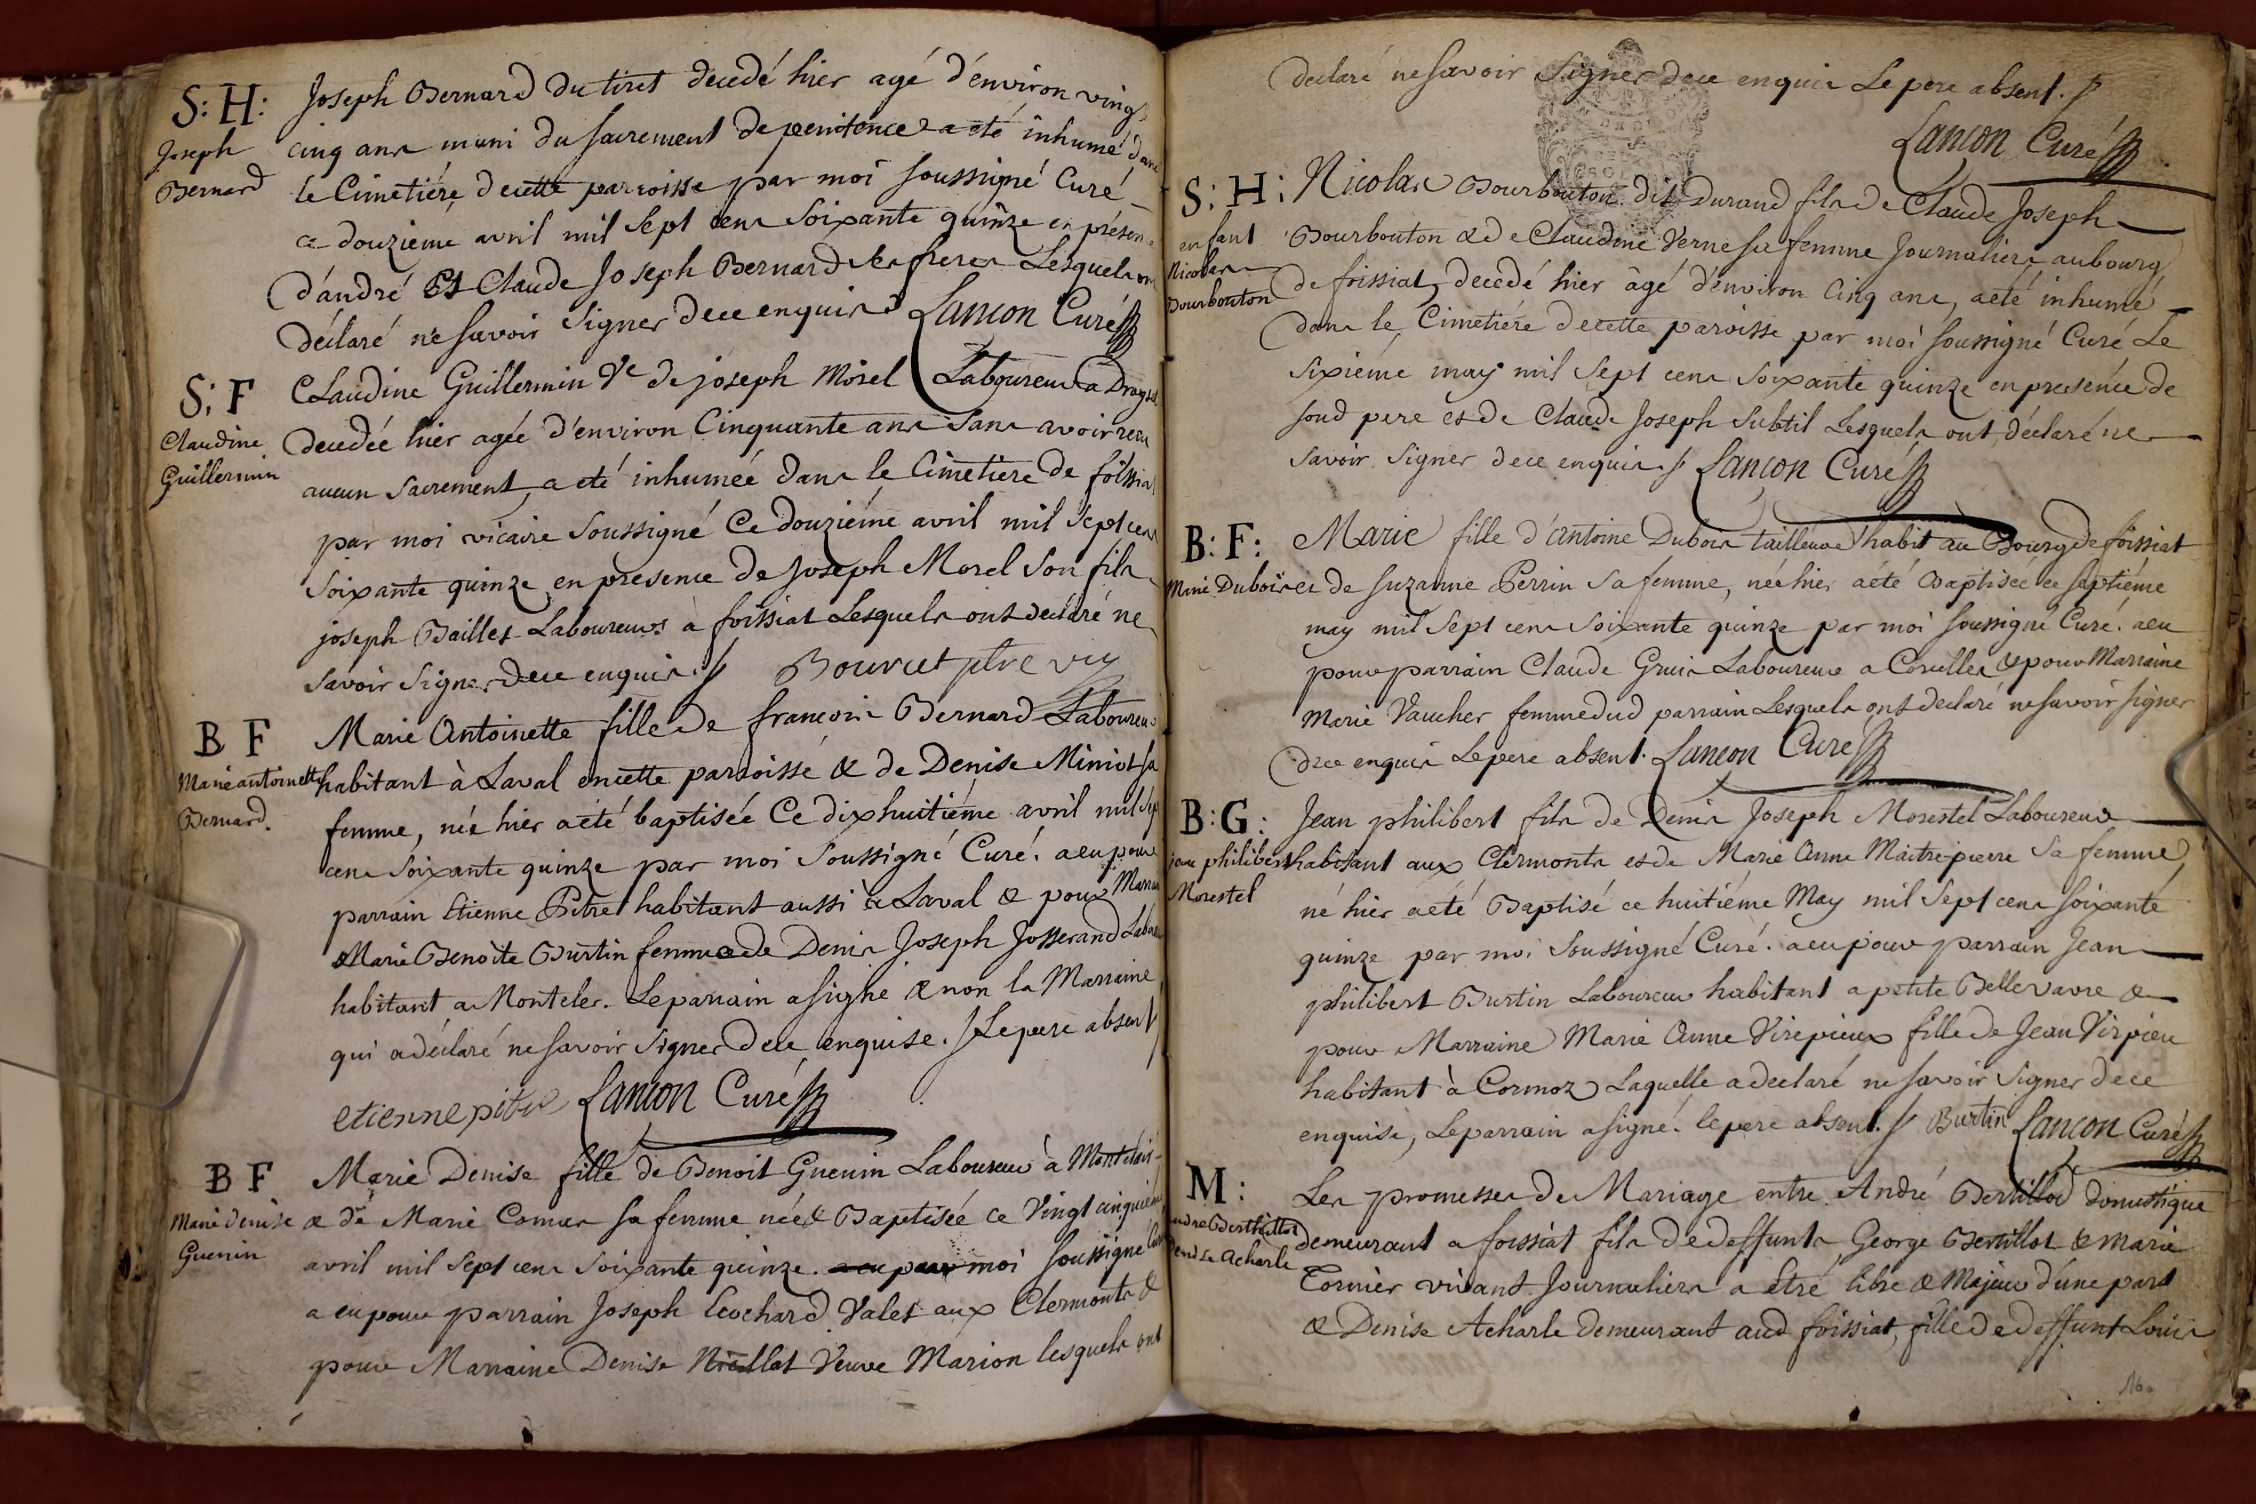 S: H: Joseph Bernard du tiret decedé hier agé d'environ vingt
Joseph cinq ans muni du sacrement de penitence a eté inhumé dans
Bernard le Cimetiére de cette parroisse par moi soussigné Curé
ce douziéme avril mil sept cens soixante quinze en présence
d'andré et Claude Joseph Bernard ses freres Lesquels ont
déclaré ne savoir signer de ce enquis Lançon Curé
S: F Claudine Guillermin Ve de joseph Morel Laboureur a
Claudine decedée hier agée d'environ Cinquante ans sans avoir recu
Guillermin aucun sacrement, a eté inhumée dans le Cimetiere de foissiat
par moi vicaire soussigné Ce douziéme avril mil sept cens
soixante quinze en presence de Joseph Morel son fils
joseph Baillet Laboureurs à foissiat Lesquels ont declaré ne
savoir signer de ce enquis Bouvret ptre vic
B F Marie Antoinette fille de francois Bernard Laboureur
Marie antoinette habitant à Laval en cette parroisse & de Denise Miniot sa
Bernard. femme, née hier a eté baptisée Ce dixhuitiéme avril mil sept
cens soixante quinze par moi soussigné Curé. a eu pour
parrain Etienne Pitre habitant aussi à Laval & pour Marraine
Marie Benoite Burtin femme de Denis Joseph Josserand Laboureur
habitant a Monteler. Le parrain a signé & non la Marraine
qui a déclaré ne savoir signer de ce enquise. Le pere absent
etienne pitre Lançon Curé
B F Marie Denise fille de Benoit Guenin Laboureur à
Marie denise & de Marie Comas sa femme née & Baptisée ce Vingt cinquiéme
Guenin avril mil sept cens soixante quinze. a eu par moi soussigné Curé
a eu pour parrain Joseph Cochard Valet aux Clermonts &
pour Marraine Denise Nicollat Veuve Marion lesquels ont
declaré ne savoir signer de ce enquis Le pere absent.
Lançon Curé
S: H: Nicolas Bourbouton dit Durand fils de Claude Joseph
enfant Bourbouton & de Claudine Verne sa femme Journaliers au bourg
Nicolas de foissiat, decedé hier âgé d'environ Cinq ans, a eté inhumé
Bourbouton dans le Cimetiére de cette paroisse par moi soussigné Curé Le
sixiéme may mil sept cens soixante quinze en presence de
soud pere et de Claude Joseph Subtil Lesquels ont déclaré ne
savoir signer de ce enquis Lançon Curé
B: F: Marie fille d'Antoine Dubois tailleur d'habit au Bourg de foissiat
Marie Dubois et de Suzanne Perrin sa femme, née hier a eté Baptisée ce septiéme
may mil sept cens soixante quinze par moi soussigné Curé. a eu
pour parrain Claude Gruis Laboureur a Corcelles & pour Marraine
Marie Vaucher femme dud parrain Lesquels ont declaré ne savoir signer
de ce enquis Le pere absent. Lançon Curé
B: G: Jean philibert fils de Denis Joseph Morestel Laboureur
jean philibert habitant aux Clermonts et de Marie Anne Maitrepierre sa femme
Morestel né hier a eté Baptisé ce huitiéme May mil sept cens soixante
quinze par moi soussigné Curé. a eu pour parrain Jean
philibert Burtin Laboureur habitant a petite Bellevavre &
pour Marraine Marie Anne Virepieux fille de Jean Virpieu
habitant à Cormoz Laquelle a declaré ne savoir signer de ce
enquise, Le parrain a signé. le pere absent. Burtin Lançon Curé
M: Les promesses de Mariage entre André Bertillod domestique
andre Berthillot demeurant a foissiat fils de deffunts George Bertillot & Marie
denise Acharle Tornier vivant Journaliers a etré libre & Majeur d'une part
& Denise Acharle demeurant aud foissiat, fille de deffunt Louis
160